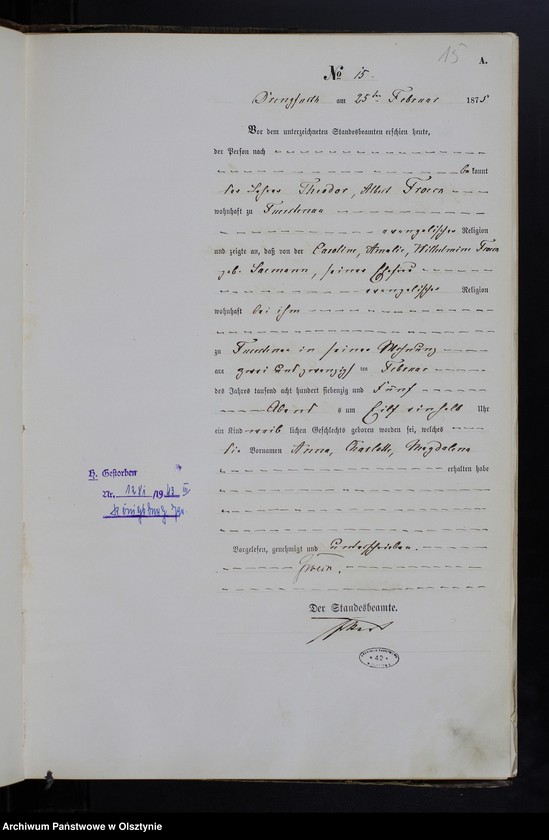 15
A.
№ 15.
Drengfurth am 25ten Februar 1875
Vor dem unterzeichneten Standesbeamten erschien heute,
der Person nach
bekannt
der Theodor, Albert
wohnhaft zu Fuerstenau
evangelischer Religion
und zeigte an, daß von der Caroline, Amalie, Wilhelmine
geb. seiner Ehefrau
evangelischer Religion
wohnhaft bei ihm
zu Fuerstenau in seiner Wohnung
am zwei und zwanzigsten Februar
des Jahres tausend acht hundert siebenzig und fünf
Abends um Eilf einhalb Uhr
ein Kind weiblichen Geschlechts geboren worden sei, welches
die Vornamen Anna, Charlotte, Magdalena
erhalten habe
H. Gestorben
Nr. /1943
Königsberg
Vorgelesen, genehmigt und unterschrieben.
Der Standesbeamte.
42
Archiwum Państwowe w Olsztynie